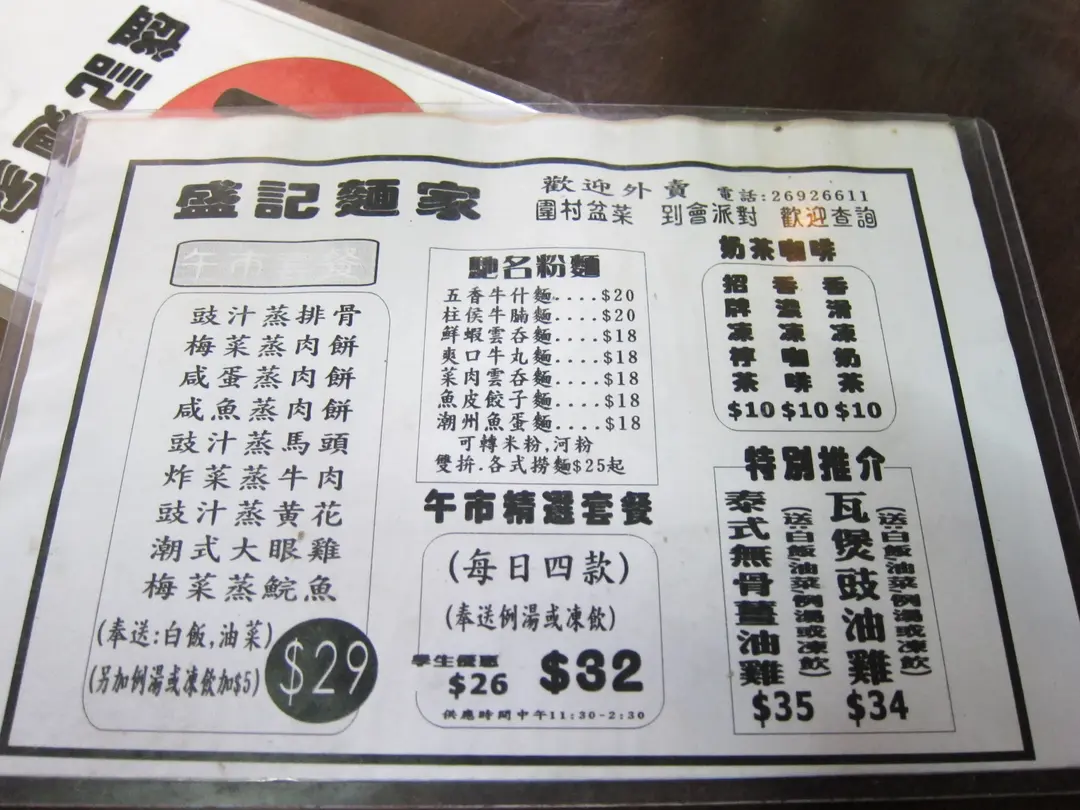 盛記麵家
歡迎外賣 電話:26926611
圍村盆菜 到會派對 歡迎查詢
午市套餐
豉汁蒸排骨
梅菜蒸肉餅
咸蛋蒸肉餅
咸魚蒸肉餅
豉汁蒸馬頭
炸菜蒸牛肉
豉汁蒸黃花
潮式大眼雞
梅菜蒸鯇魚
(奉送:白飯,油菜)
(另加例湯或凍飲加$5)
$29
馳名粉麵
五香牛什麵....$20
柱侯牛腩麵....$20
鮮蝦雲吞麵....$18
爽口牛丸麵....$18
菜肉雲吞麵....$18
魚皮餃子麵....$18
潮州魚蛋麵....$18
可轉米粉,河粉
雙拚.各式撈麵$25起
午市精選套餐
(每日四款)
(奉送例湯或凍飲)
學生優惠
$26
$32
供應時間中午11:30-2:30
奶茶咖啡
招牌凍檸茶 $10
香濃凍咖啡 $10
香滑凍奶茶 $10
特別推介
瓦煲豉油雞
(送:白飯油菜例湯或凍飲)
$34
泰式無骨薑油雞
(送:白飯油菜例湯或凍飲)
$35